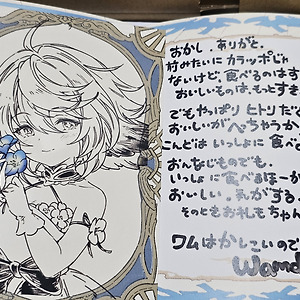 おかし、ありがと。
村みたいにカラッポじゃ
ないけど、食べるのはす
おいしいものは、もっとすき
でもやっぱり ヒトリだく
おいしいがへちゃうか
こんどは いっしょに 食べ
おんなじものでも、
いっしょに食べるほーが
おいしい。気がする。
そのときおれもちゃん
ワムは かしこいので
Wamd